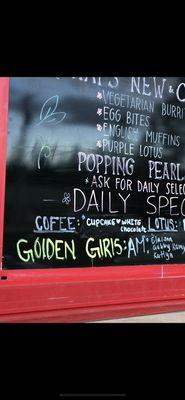 NEW &
*VEGETARIAN BURRI
*EGG BITES
*ENGLISH MUFFINS
*PURPLE LOTUS
POPPING PEARL
*ASK FOR DAILY SELE
DAILY SPEC
COFEE: *CUPCAKE *WHITE
Chocolate
LOTUS:
GOLDEN GIRlS: AM:
Gabby
Kaitlyn